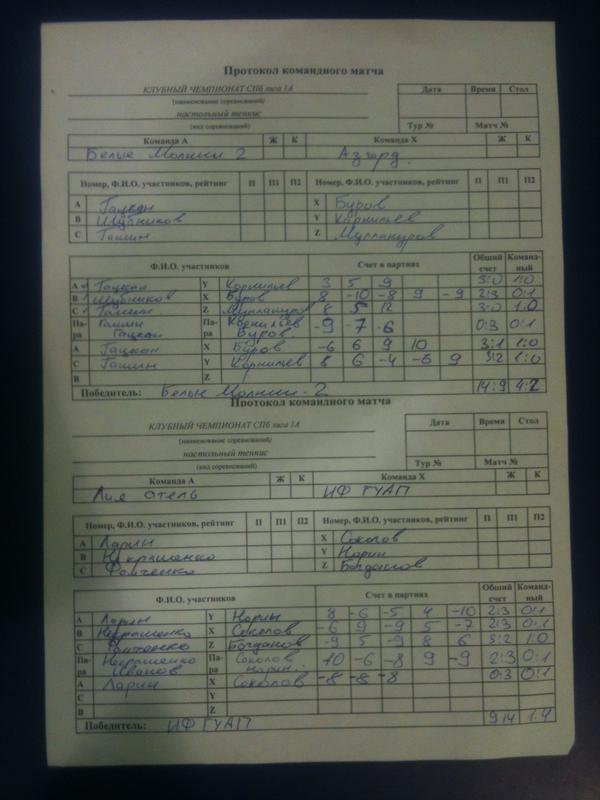 Протокол командного матча
КЛУБНЫЙ ЧЕМПИОНАТ СПб лига 1А
(наименование соревнований)
настольный теннис
(вид соревнований)
Дата Время Стол
Тур № Матч №
Команда А Ж К Команда X Ж К
Белые Молнии 2 Азгард.
Номер, Ф.И.О. участников, рейтинг П П1 П2 Номер, Ф.И.О. участников, рейтинг П П1 П2
А Гацкан X Буров
В Шубников Y Корнильев
С Гашин Z Муллануров
Ф.И.О. участников Счет в партиях Общий счет Команд-ный
А Гацкан Y Корнильев 3 5 9 3:0 1:0
В Шубников X Буров 8 -10 -8 9 -9 2:3 0:1
С Гашин Z Муллануров 8 5 12 3:0 1:0
Па-ра Гашин Гацкан Па-ра Корнильев Буров. -9 -7 -6 0:3 0:1
А Гацкан X Буров -6 6 9 10 3:1 1:0
С Гашин Y Корнильев 8 6 -4 -6 9 3:2 1:0
В Z
Победитель: Белые Молнии-2 14:9 4:2
Протокол командного матча
КЛУБНЫЙ ЧЕМПИОНАТ СПб лига 1А
(наименование соревнований)
настольный теннис
(вид соревнований)
Дата Время Стол
Тур № Матч №
Команда А Ж К Команда X Ж К
Лия отель ИФ ГУАП
Номер, Ф.И.О. участников, рейтинг П П1 П2 Номер, Ф.И.О. участников, рейтинг П П1 П2
А Ларин X Соколов
В Некрашенко Y Норин
С Фомченко Z Богданов
Ф.И.О. участников Счет в партиях Общий счет Команд-ный
А Ларин Y Норин 8 -6 -5 4 -10 2:3 0:1
В Некрашенко X Соколов -6 9 -9 5 -7 2:3 0:1
С Фомченко Z Богданов -9 5 -9 8 6 3:2 1:0
Па-ра Некрашенко Иванов Па-ра Соколов Норин. 10 -6 -8 9 -9 2:3 0:1
А Ларин X Соколов -8 -8 -8 0:3 0:1
С Y
В Z
Победитель: ИФ ГУАП 9:14 1:4